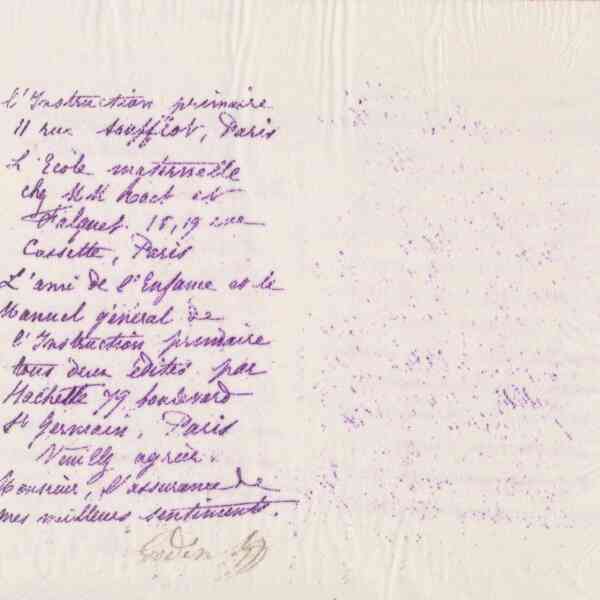 l'Instruction primaire
11 rue Soufflot, Paris
L'Ecole maternelle
chez MM et
15, 19 rue
Cassette, Paris
L'ami de l'Enfance et le
Manuel général de
l'Instruction primaire
tous deux édités par
Hachette 79 boulevard
St Germain, Paris
Veuillez agréer,
Monsieur, l'assurance de
mes meilleurs sentiments.
Godin